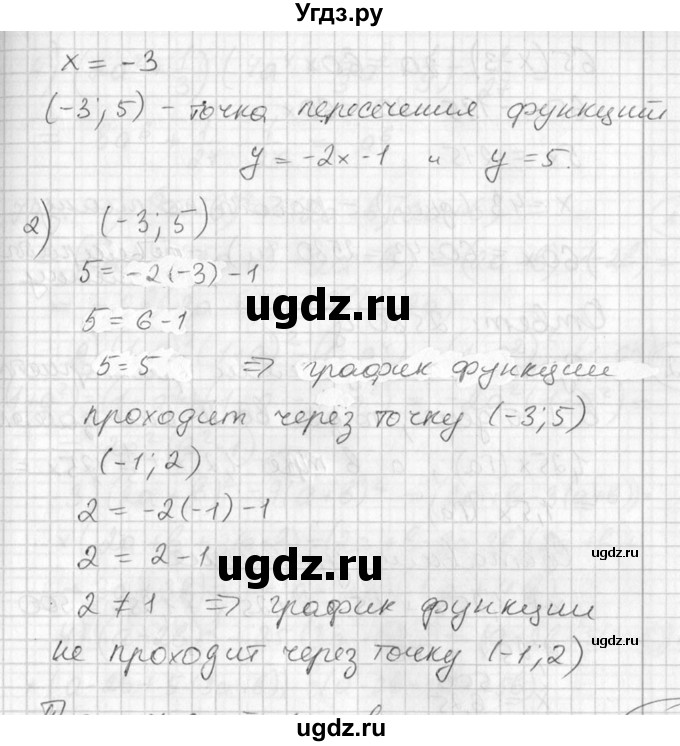 Угдз.ру
x = -3
(-3; 5) - точка пересечения функций
y = -2x - 1 и y = 5.
2) (-3; 5)
5 = -2(-3) - 1
ugdz.ru
5 = 6 - 1
5 = 5 ⇒ график функции
проходит через точку (-3; 5)
(-1; 2)
2 = -2(-1) - 1
2 = 2 - 1
ugdz.ru
ugdz.ru
2 ≠ 1 ⇒ график функции
ugdz.ru
не проходит через точку (-1; 2)
ugdz.ru